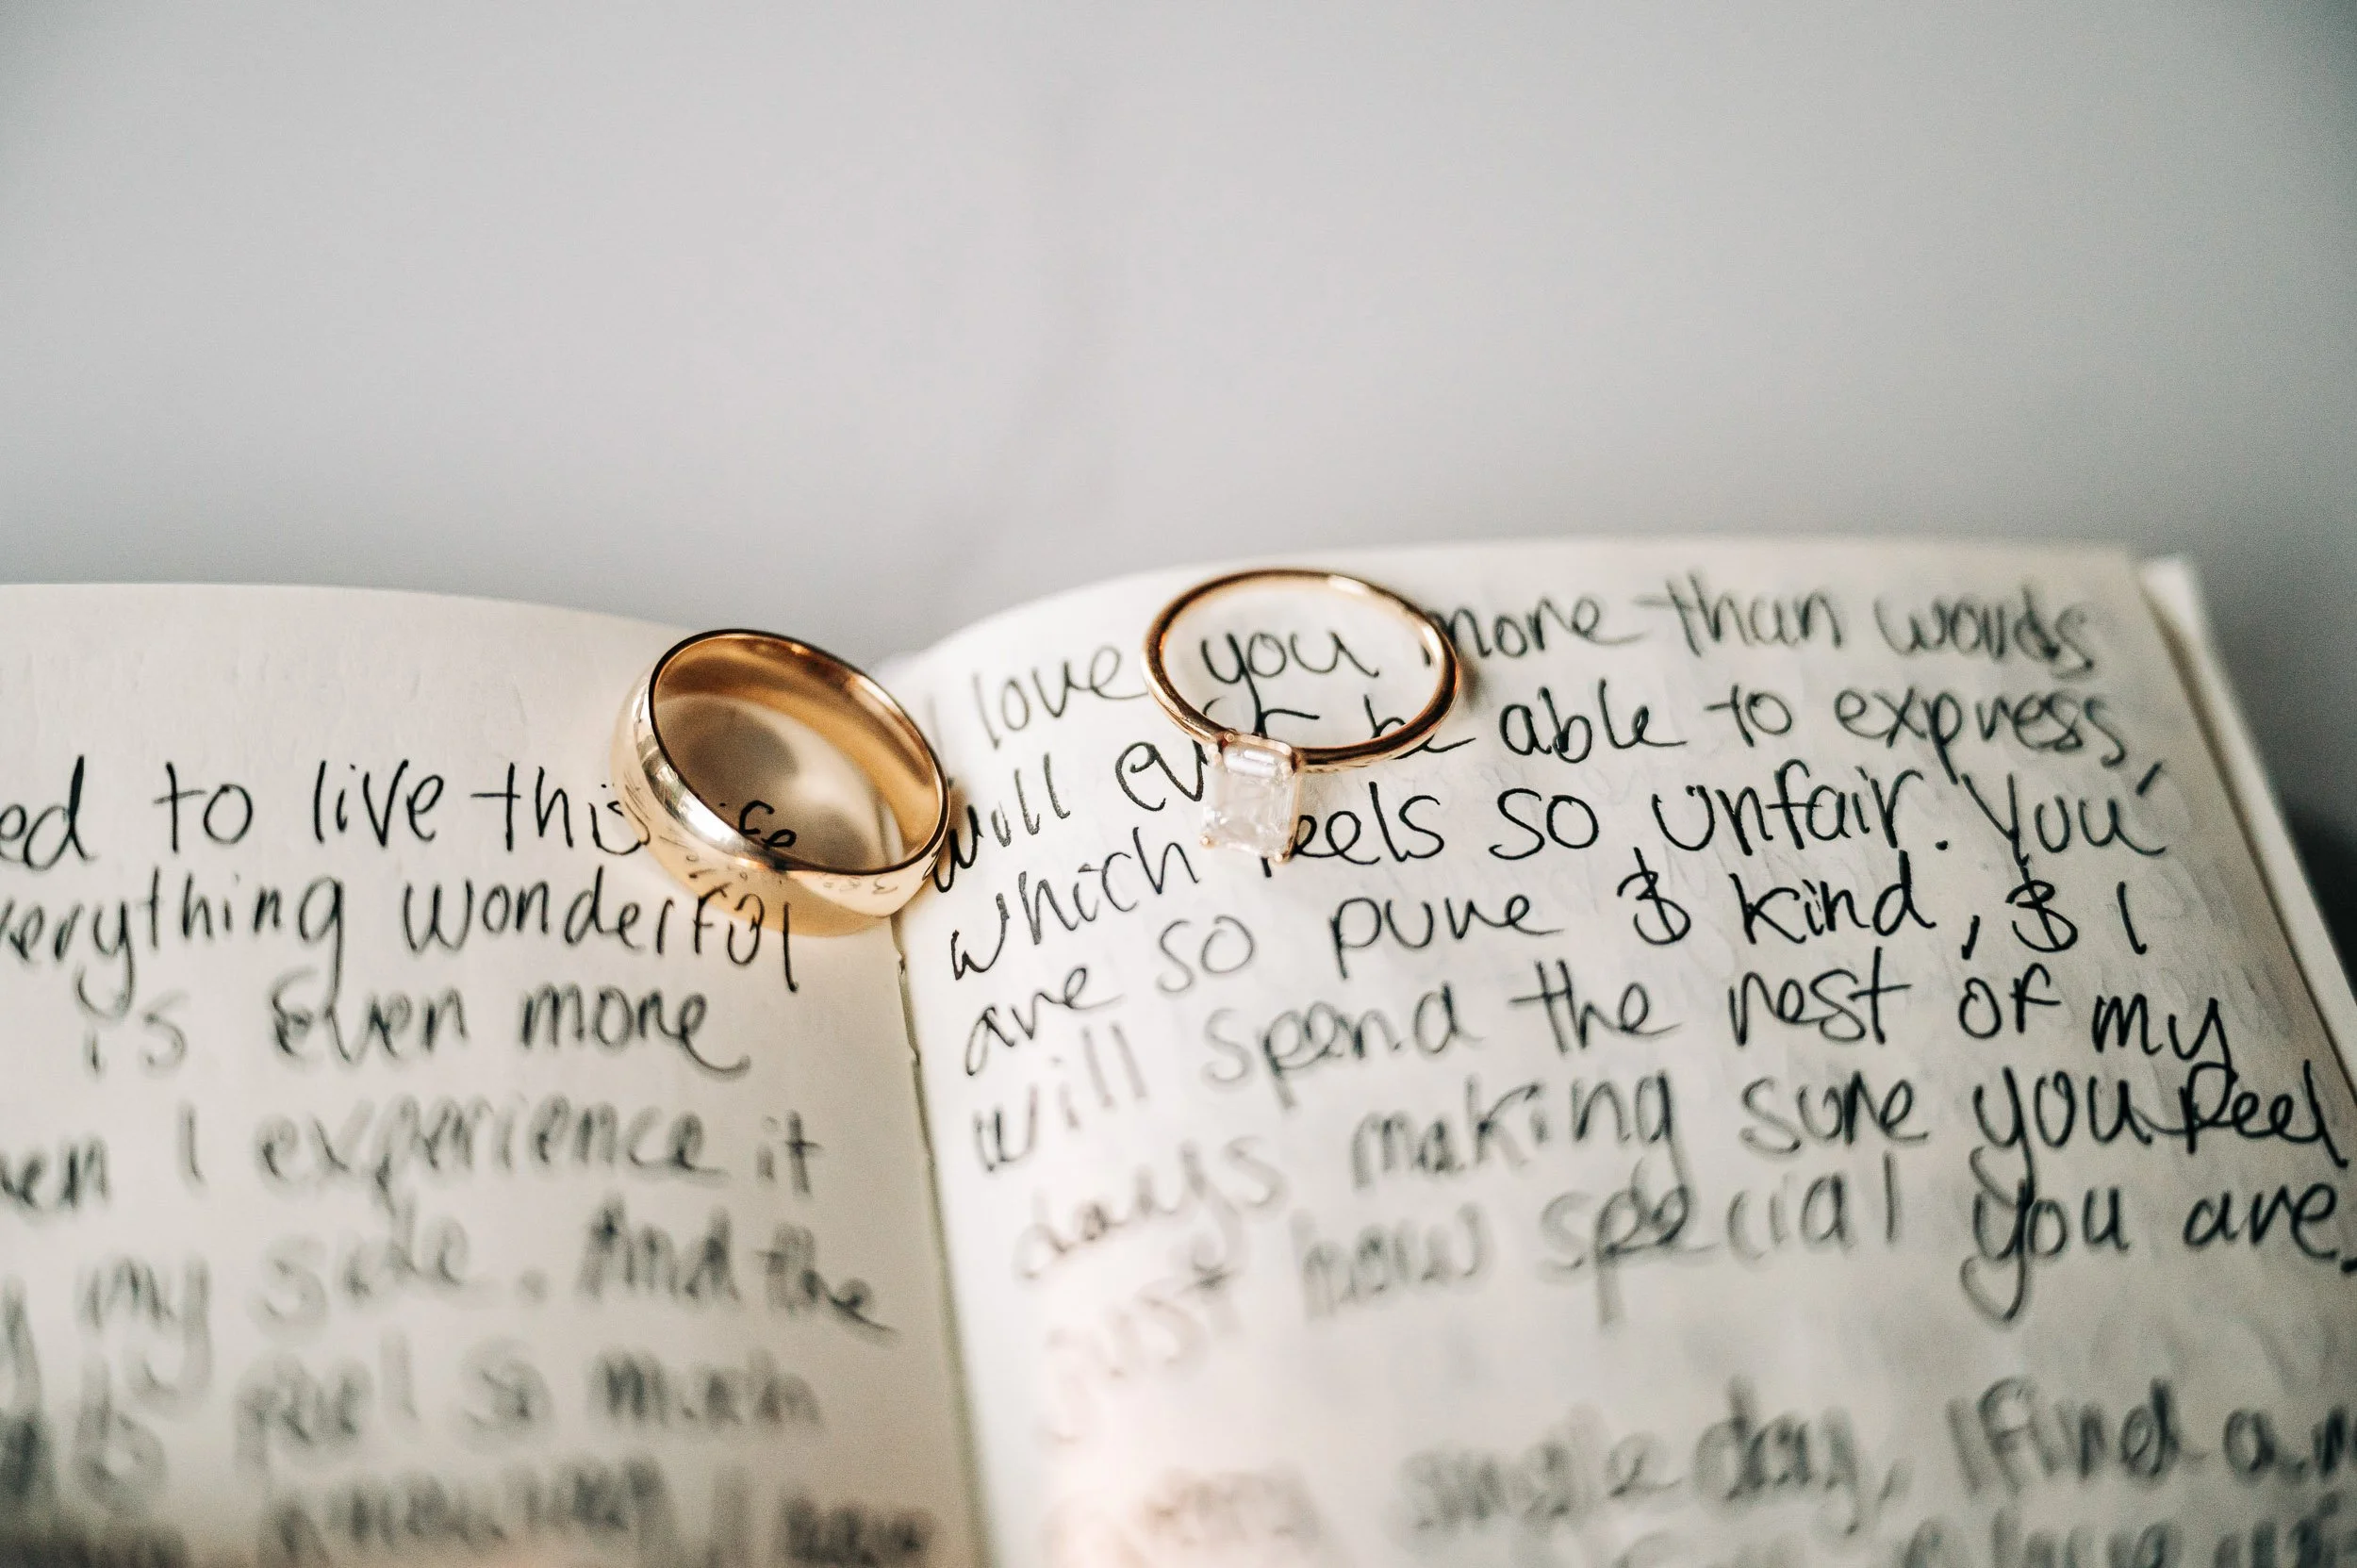 ed to live this life
verything wonderful
is even more
en I experience it
my side. And the
feel so much
I love you more than words
will ever be able to express,
which feels so unfair. You
are so pure & kind, & I
will spend the rest of my
days making sure you feel
just how special you are.
single day, I find a